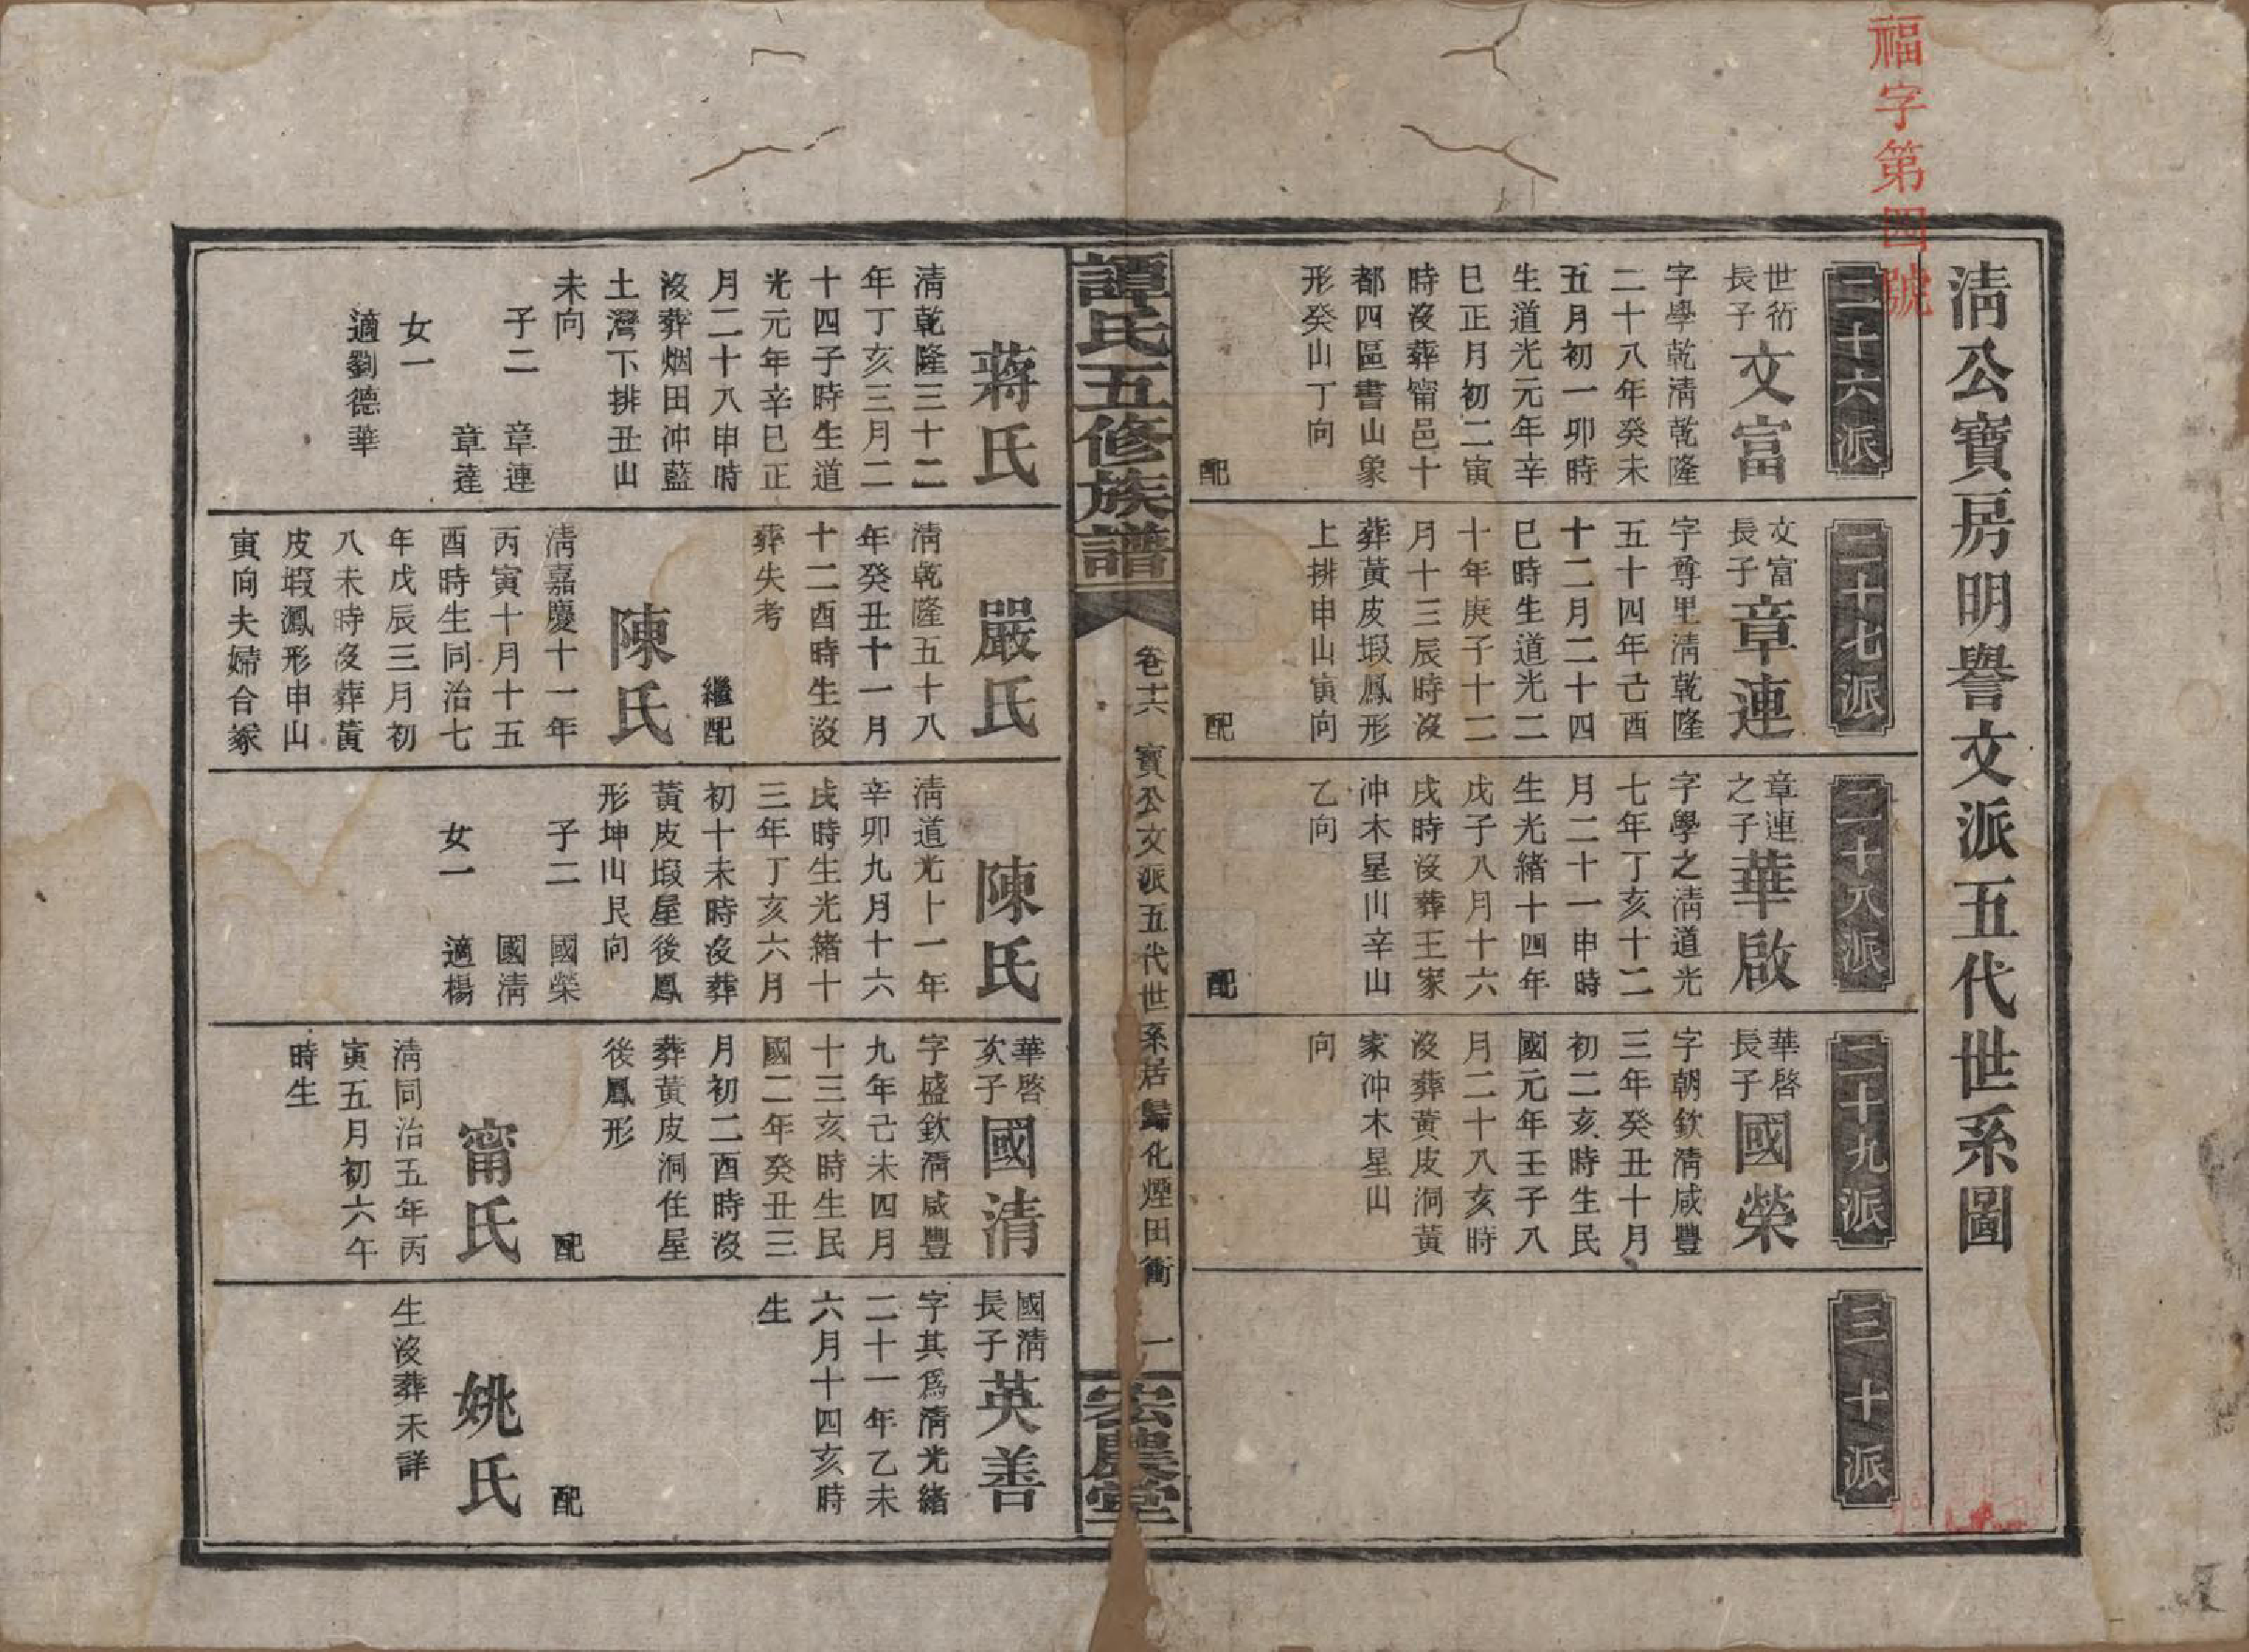 福字第四號
清公寶房明譽文派五代世系圖
二十六派
世衍長子
文富
字學乾淸乾隆
二十八年癸未
五月初一卯時
生道光元年辛
巳正月初二寅
時沒葬甯邑十
都四區書山象
形癸山丁向
配
二十七派
文富長子
章連
字尊里淸乾隆
五十四年己酉
十二月二十四
巳時生道光二
十年庚子十二
月十三辰時沒
葬黃皮塅鳳形
上排申山寅向
配
二十八派
章連之子
華啟
字學之淸道光
七年丁亥十二
月二十一申時
生光緒十四年
戊子八月十六
戌時沒葬王家
冲木星山辛山
乙向
配
二十九派
華啓長子
國榮
字朝欽淸咸豐
三年癸丑十月
初二亥時生民
國元年壬子八
月二十八亥時
沒葬黃皮洞黃
家冲木星山
向
三十派
譚氏五修族譜
卷十六 寶公文派五代世系居歸化煙田衝 一
宏農堂
蔣氏
淸乾隆三十二
年丁亥三月二
十四子時生道
光元年辛巳正
月二十八申時
沒葬烟田冲藍
土灣下排丑山
未向
子二 章連
章達
女一
適劉德華
嚴氏
淸乾隆五十八
年癸丑十一月
十二酉時生沒
葬失考
繼配
陳氏
淸嘉慶十一年
丙寅十月十五
酉時生同治七
年戊辰三月初
八未時沒葬黃
皮塅鳳形申山
寅向夫婦合塚
陳氏
淸道光十一年
辛卯九月十六
戌時生光緒十
三年丁亥六月
初十未時沒葬
黃皮塅屋後鳳
形坤山艮向
子二 國榮
國淸
女一 適楊
華啓次子
國清
字盛欽淸咸豐
九年己未四月
十三亥時生民
國二年癸丑三
月初二酉時沒
葬黃皮洞住屋
後鳳形
配
甯氏
淸同治五年丙
寅五月初六午
時生
國淸長子
英善
字其爲淸光緒
二十一年乙未
六月十四亥時
生
配
姚氏
生沒葬未詳